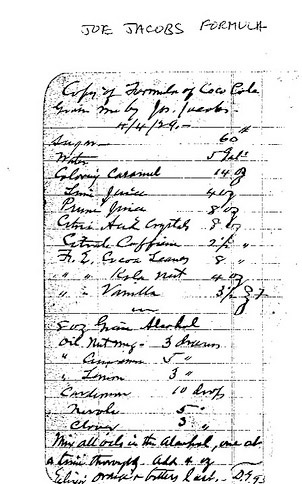 JOE JACOBS FORMULA
Copy of Formula of Coco Cola
Given me by Jos. Jacobs
4/4/29.—
Sugar — 60 #
Water 5 Gals
Coloring Caramel 14 oz
Lime Juice 4 oz
Prune Juice 8 oz
Citric Acid Crystals 8 oz
Citrate Caffeine 2½ "
Fl. E. Cocoa Leaves 8 "
" " Kola Nut 4 oz
" " Vanilla 3½ oz
in
8 oz Grain Alcohol
Oil Nutmeg - 3 drams
" Cinnamon 5 "
" Lemon 3 "
Cardemon 10 drops
Nerole 5 "
Clove 3 "
Mix all oils in the Alcohol, one at
a time thoroughly Add 4 oz
Elixir orange & bitters last.